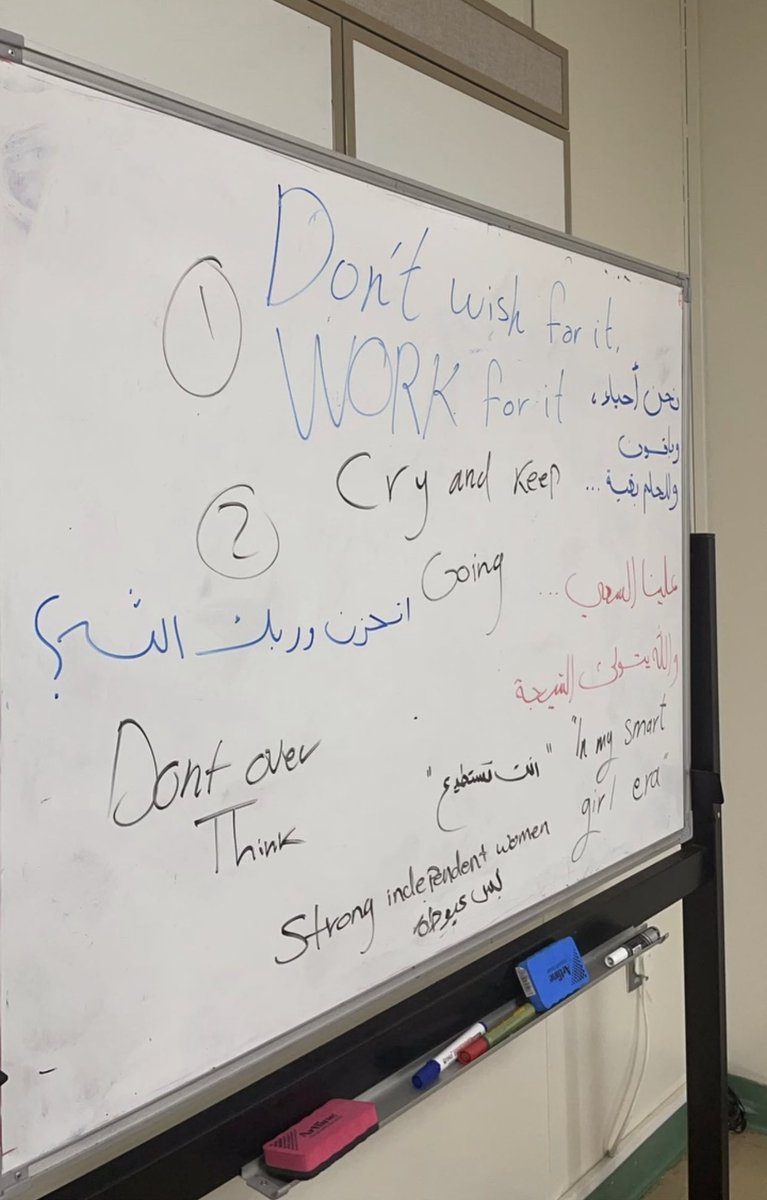 1
Don't wish for it,
WORK for it
نحن أحياء،
وباقون
وللحلم بقية ...
2
Cry and keep
Going
انحزن وربك الله؟
علينا السعي ...
والله يتولى النتيجة
Dont over
Think
"انت تستطيع"
"In my smart
girl era"
Strong independent women
بس عيوطه
Artline
Artline